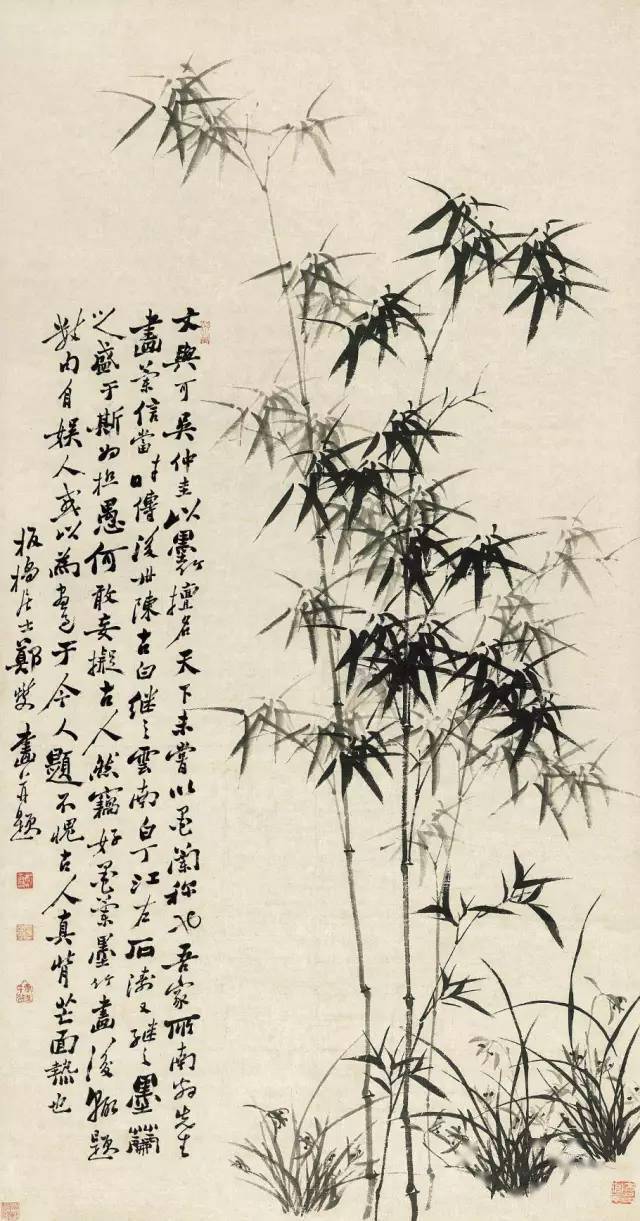 文與可吳仲圭以墨竹擅名天下未嘗以墨蘭稱也吾家所南翁先生
畫蘭信當時傳後世陳古白繼之雲南白丁江右石濤又繼之墨蘭
之盛于斯為極愚何敢妄擬古人然竊好墨蘭墨竹畫後輒題
內自娛人或以為于今人顯不愧古人真背芒面熱也
板橋居士鄭燮畫并題